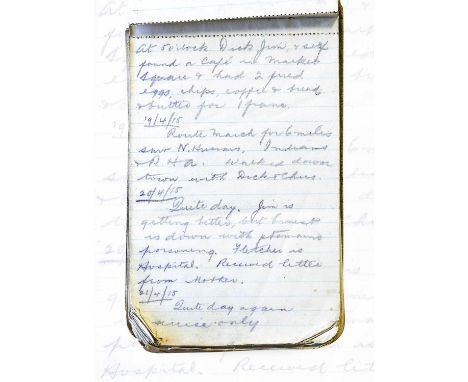 At 5 o'clock Dick, Jim, & self
found a Café in Market
Square & had 2 fried
eggs, chips, coffee & bread
& butter for 1 franc.
19/4/15
Route March for 6 miles
saw N. Hussars, Indians
& R H A. Walked down
town with Dick & Chris.
20/4/15
Quite day. Jim is
getting better, but
is down with ptomaine
poisoning. Fletcher is
Hospital. Received letter
from Mother.
21/4/15
Quite day again
only